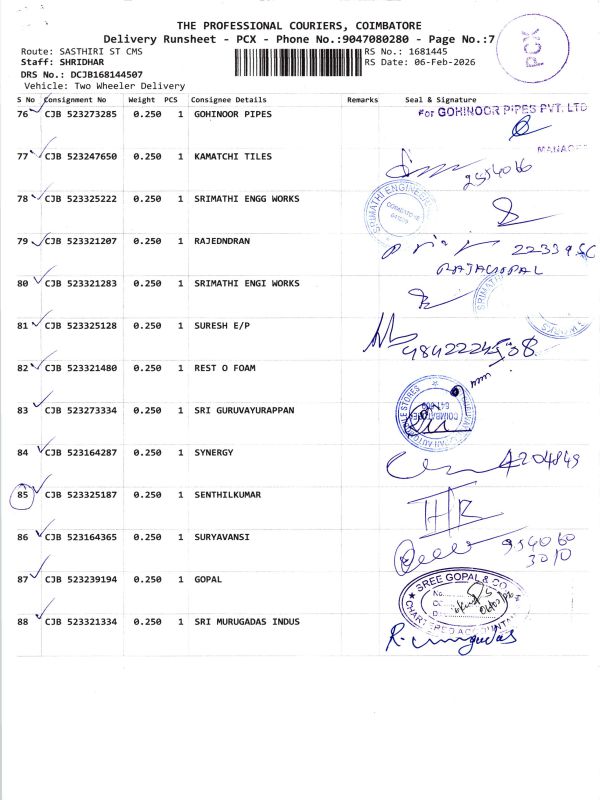 THE PROFESSIONAL COURIERS, COIMBATORE
Delivery Runsheet - PCX - Phone No.:9047080280 - Page No.:7
PCX
Route: SASTHIRI ST CMS
RS No.: 1681445
Staff: SHRIDHAR
RS Date: 06-Feb-2026
DRS No.: DCJB168144507
Vehicle: Two Wheeler Delivery
S No Consignment No Weight PCS Consignee Details Remarks Seal & Signature
76 CJB 523273285 0.250 1 GOHINOOR PIPES For GOHINOOR PIPES PVT. LTD
MANAGER
77 CJB 523247650 0.250 1 KAMATCHI TILES
78 CJB 523325222 0.250 1 SRIMATHI ENGG WORKS SRIMATHI ENGINEERING
COIMBATORE
79 CJB 523321207 0.250 1 RAJEDNDRAN
RAJAGOPAL
80 CJB 523321283 0.250 1 SRIMATHI ENGI WORKS SRIMATHI
WORKS
81 CJB 523325128 0.250 1 SURESH E/P
82 CJB 523321480 0.250 1 REST O FOAM
83 CJB 523273334 0.250 1 SRI GURUVAYURAPPAN
84 CJB 523164287 0.250 1 SYNERGY 4204849
85 CJB 523325187 0.250 1 SENTHILKUMAR
86 CJB 523164365 0.250 1 SURYAVANSI 954060
3010
87 CJB 523239194 0.250 1 GOPAL SREE GOPAL & CO
No.
CHARTERED ACCOUNTANTS
88 CJB 523321334 0.250 1 SRI MURUGADAS INDUS
R. Murugadas